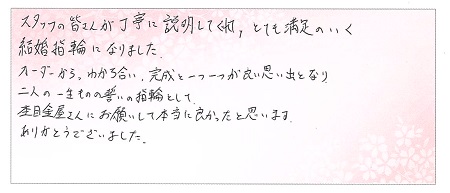 スタッフの皆さんが丁寧に説明してくれ、とても満足のいく
結婚指輪になりました。
オーダーから、わかち合い、完成と一つ一つが良い思い出となり
二人の一生ものの誓いの指輪として、
杢目金屋さんにお願いして本当に良かったと思います。
ありがとうございました。